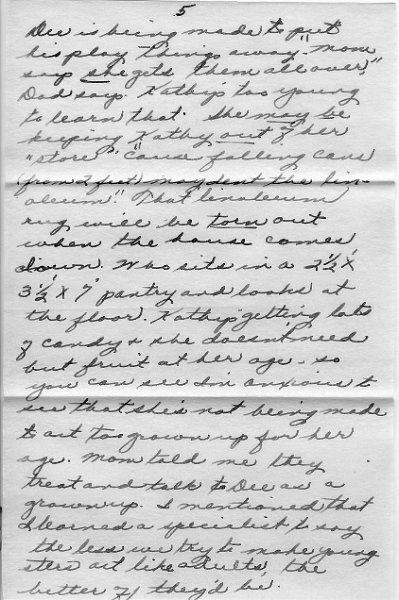 5
Dee is being made to put
his play things away. "Mom
says she gets them all over,"
Dad says. Kathy's too young
to learn that. She may be
keeping Kathy out of her
"store" 'cause falling cans
(from 2 feet) may dent the lin-
oleum." That linoleum
rug will be torn out
when the house comes
down. Who sits in a 2½ X
3½ X 7 pantry and looks at
the floor. Kathy's getting lots
of candy & she doesn't need
but fruit at her age. so
you can see I'm anxious to
see that she's not being made
to act too grown up for her
age. Mom told me they
treat and talk to Dee as a
grown up. I mentioned that
I learned a specialist to say
the less we try to make young
sters act like adults, the
better they'd be.